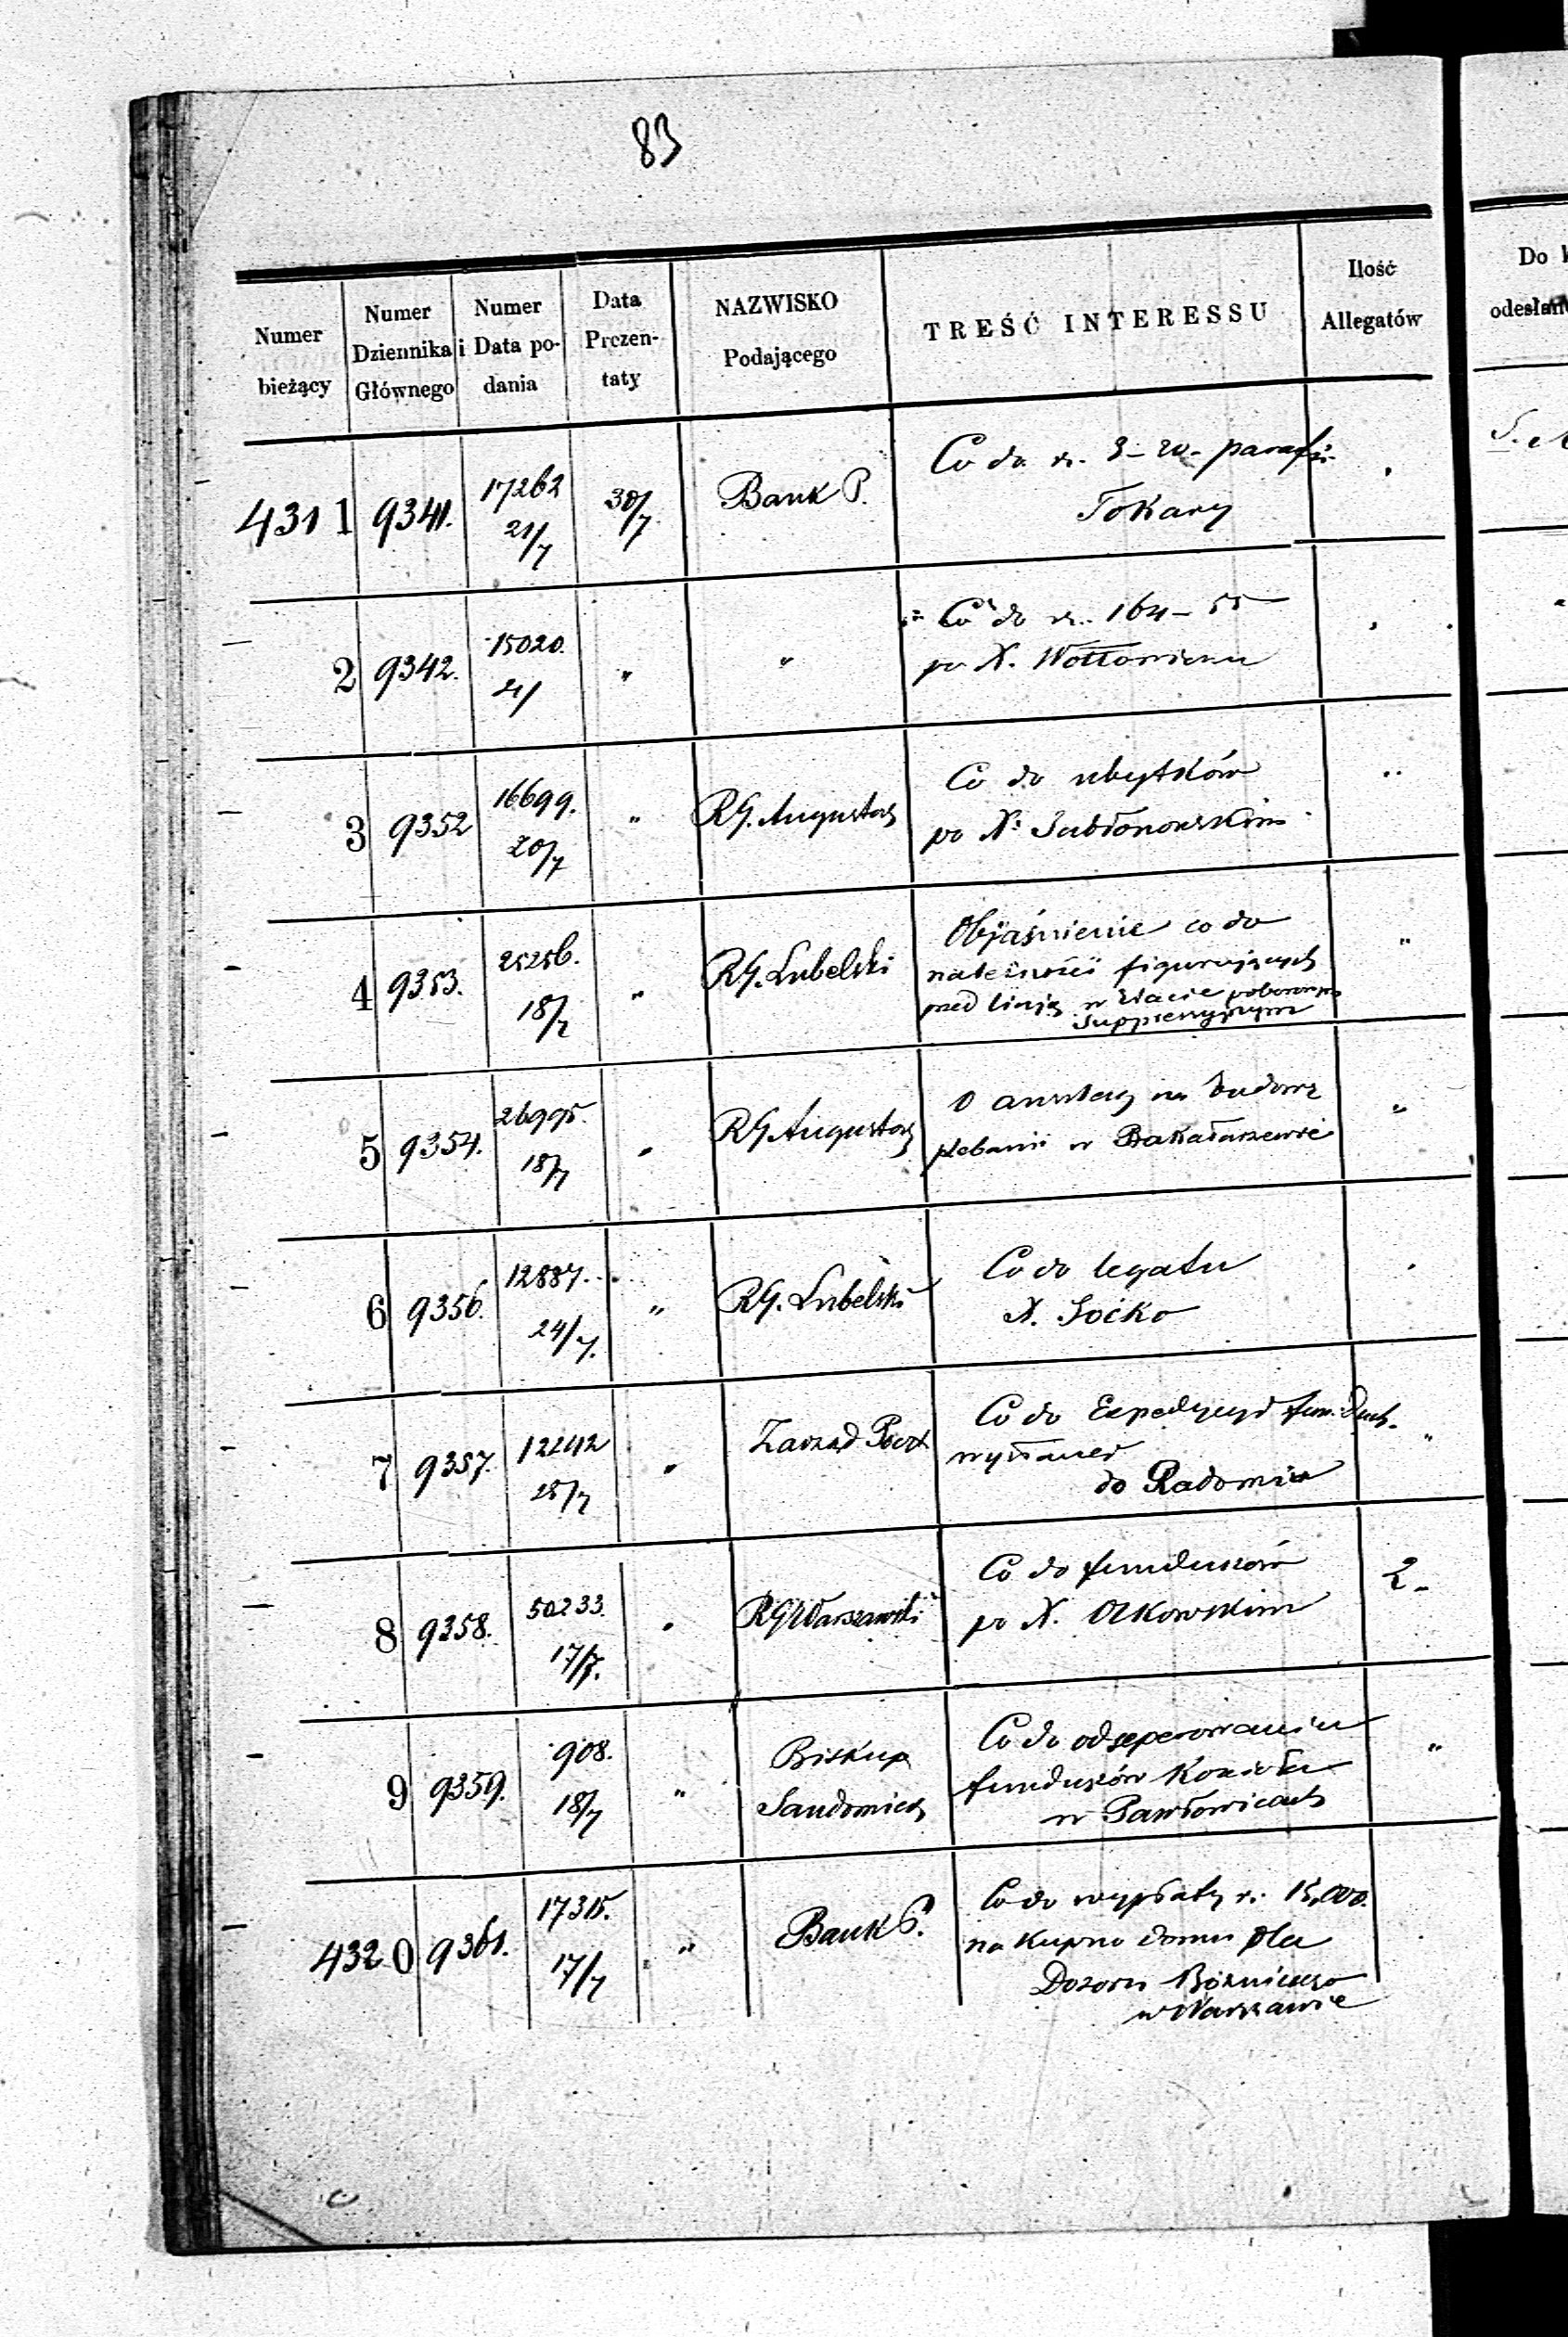 83
Numer bieżący
Numer Dziennika Głównego
Numer i Data podania
Data Prezentaty
NAZWISKO Podającego
TREŚĆ INTERESSU
Ilość Allegatów
4311 9341. 17262 21/7 30/7 Bank P. Co do r. 3-20- parafii
Tokary
2 9342. 15020. 21/ " " Co do r. 164-55
po X.
3 9352 16699. 20/7 " RG. Augustow Co do ubytków
po X. Jabłonowskim
4 9353. 25256. 18/7 " RG. Lubelski Objaśnienie co do
należności figurujących
pod linją w
5 9354. 26995. 18/7 " RG Augustow O na budowę
plebanii w Bakałarzewie
6 9356. 12887. 24/7. " RG. Lubelski Co do legatu
X. Soćko
7 9357. 12242 25/7 " Zarząd Poczt Co do Expedycyi fun. Duch.
wysłanej
do Radomia
8 9358. 50233. 17/7. " RG Warszawski Co do funduszów 2-
po X. Olkowskim
9 9359. 908. 18/7 " Biskup Co do odseperowania "
Sandomier funduszów Kościoła
w Pawłowicach
4320 9361. 17315. 17/7 " Bank P. Co do wypłaty r. 15,000.
na kupno domu dla
Dozoru Bóżniczego
w Warszawie
Do
odesłan